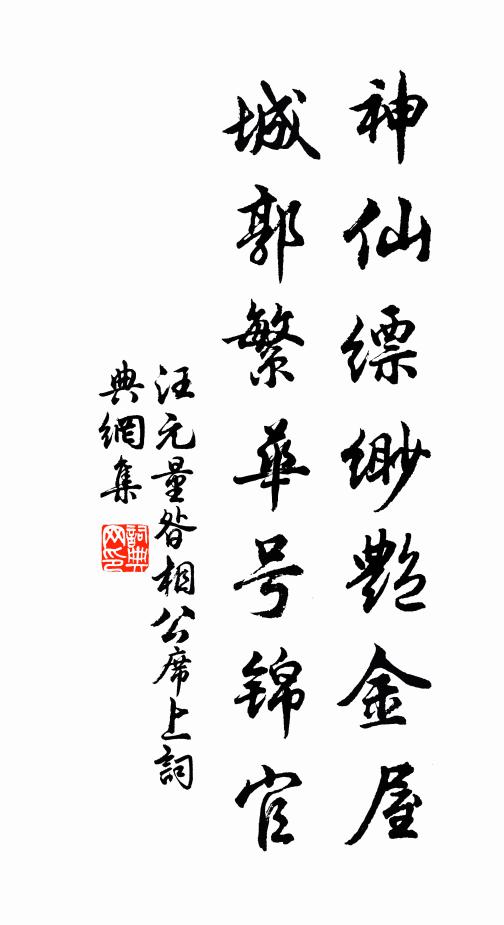 神仙缥缈艳金屋
城郭繁华号锦官
汪元量昝相公席上詞
典網集
詞典網印